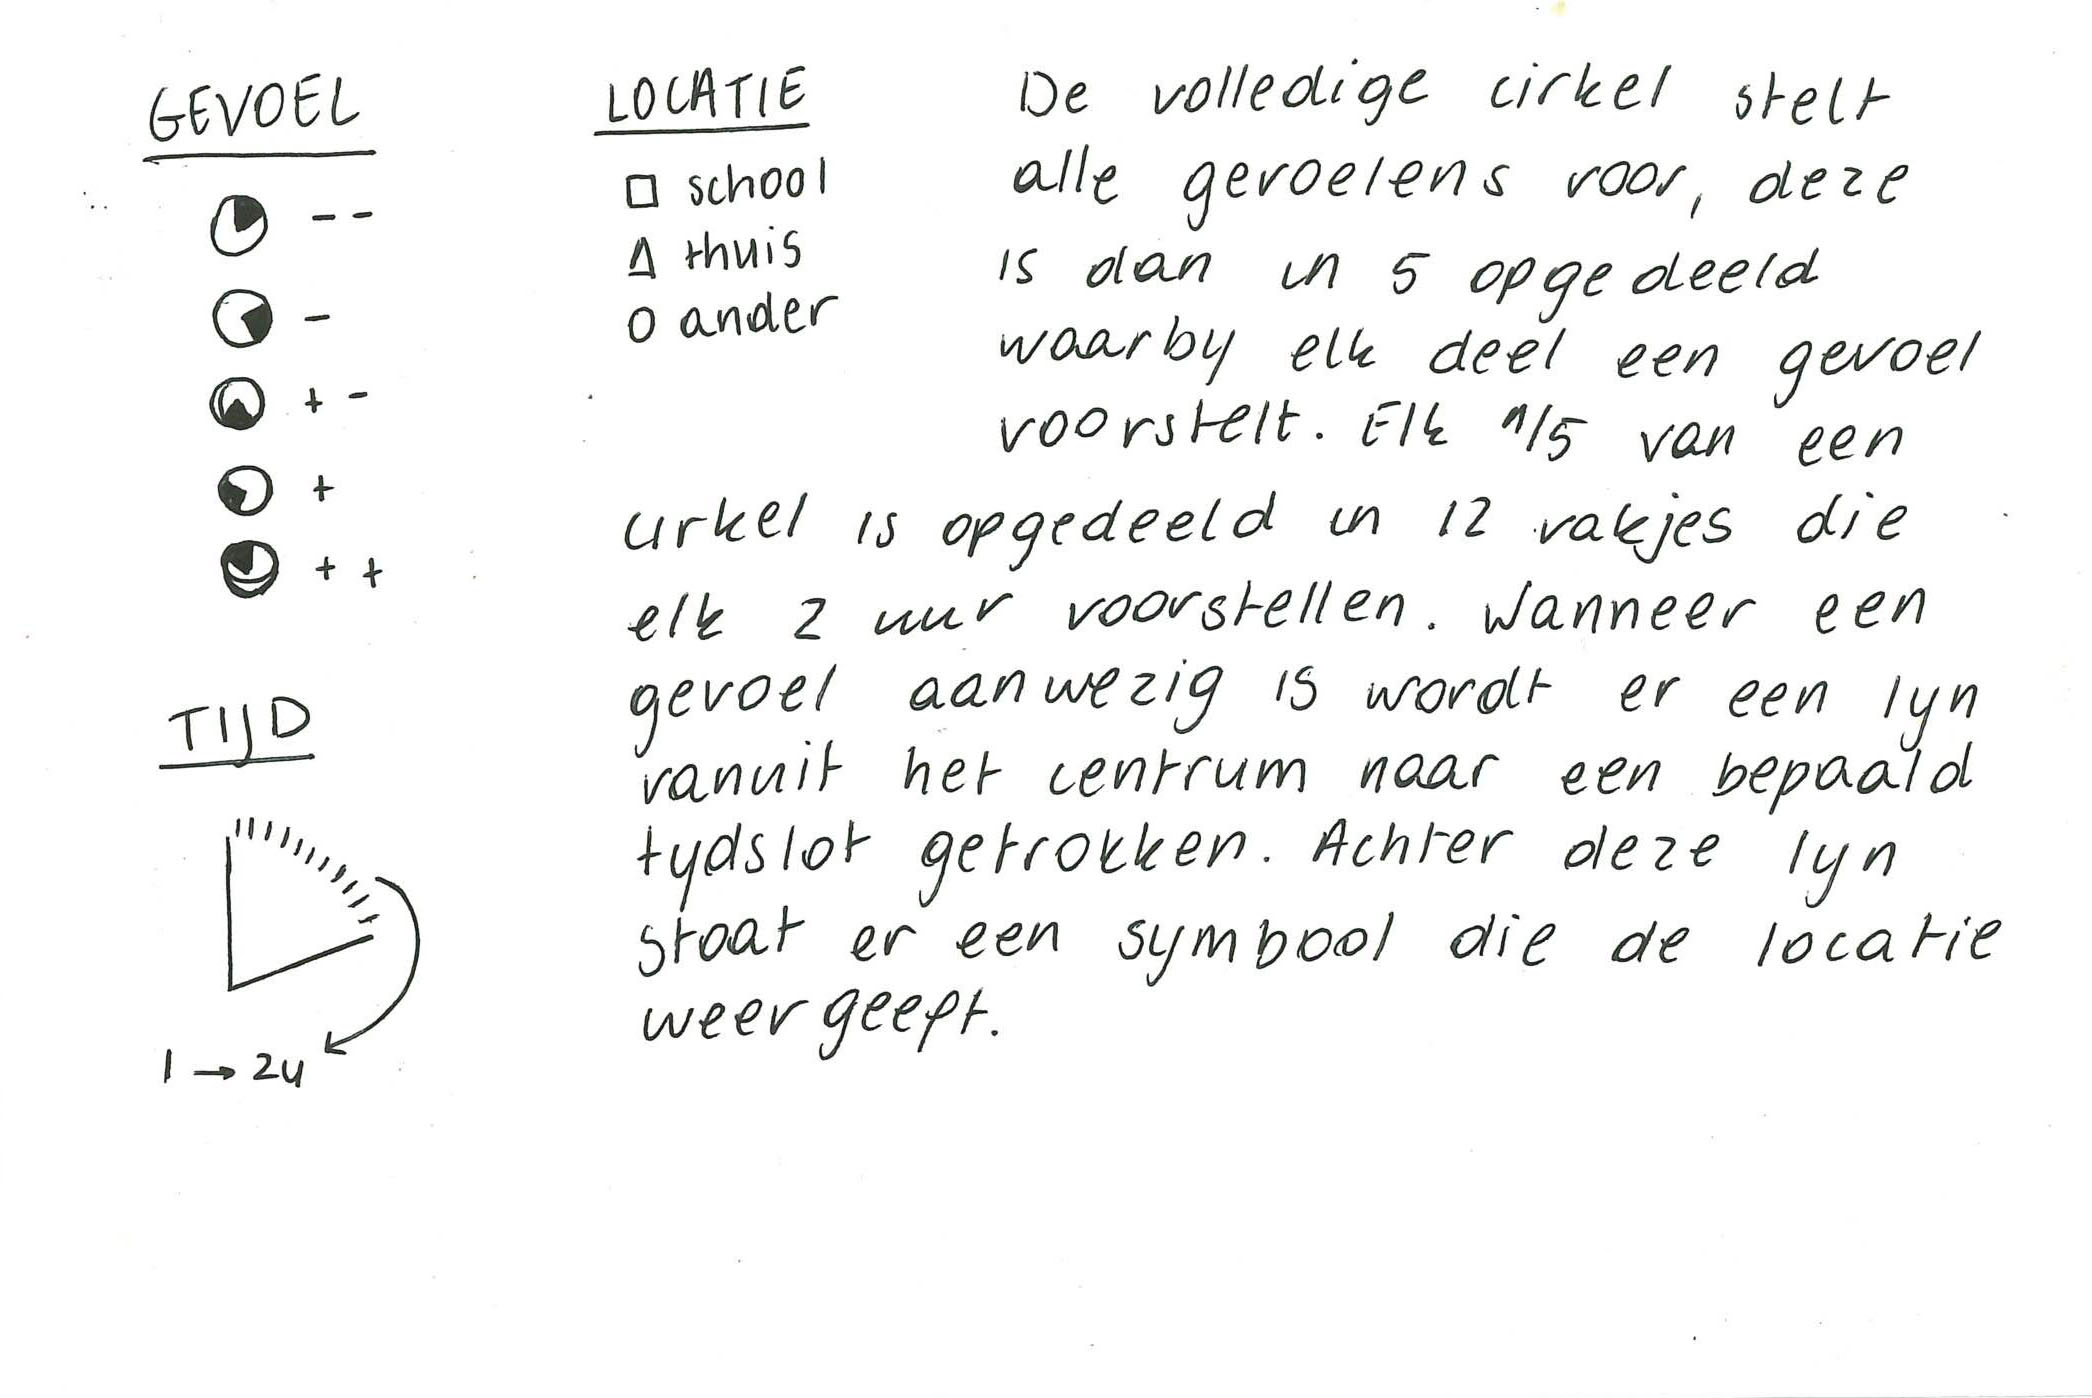 GEVOEL
- -
-
+ -
+
+ +
TIJD
1 → 2u
LOCATIE
□ school
△ thuis
O ander
De volledige cirkel stelt
alle gevoelens voor, deze
is dan in 5 opgedeeld
waarby elk deel een gevoel
voorstelt. Elk 1/5 van een
cirkel is opgedeeld in 12 vakjes die
elk 2 uur voorstellen. Wanneer een
gevoel aanwezig is wordt er een lyn
vanuit het centrum naar een bepaald
tydslot getrokken. Achter deze lyn
staat er een symbool die de locatie
weergeeft.